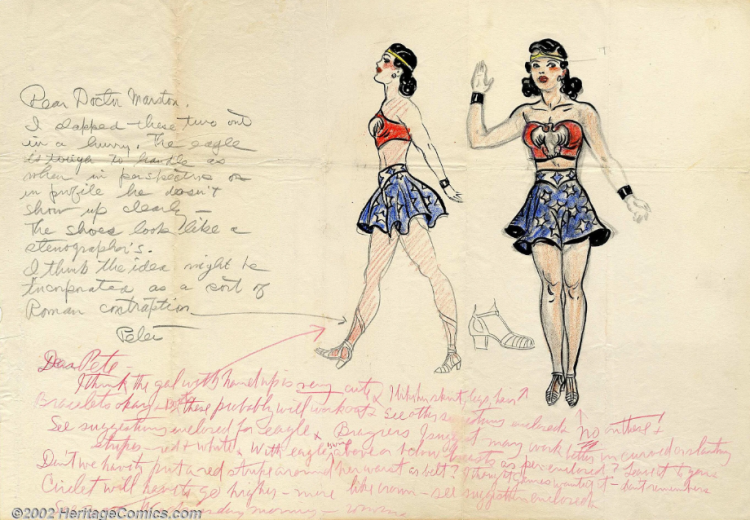 Dear Doctor Marston,
I slapped these two out
in a hurry. The eagle
is tough to handle as
when in perspective or
in profile he doesn't
show up clearly —
The shoes look like a
stenographer's.
I think the idea might be
incorporated as a sort of
Roman contraption
Peter
Dear Pete
I think the gal with hand up is very cute. I like her skirt, legs, hair
Bracelets okay – these probably will work out. See other suggestions enclosed. No on these!
See suggestions enclosed for eagle
stripes – red & white. With eagle's above or below as per enclosed?
Don't we have to put a red stripe around her waist as belt? I thought – don't remember
Circlet will have to go higher – more like crown – see suggestions enclosed.
morning –
©2002 HeritageComics.com